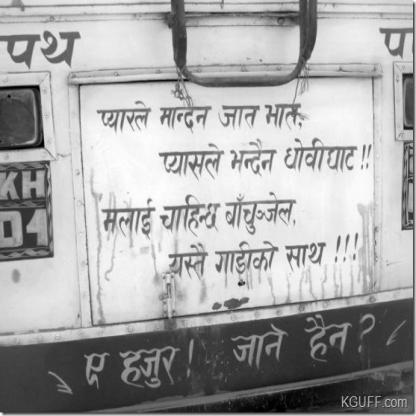 पथ
प
प्यारले मान्दैन जात भात,
प्यासले भन्दैन धोवीघाट !!
मलाई चाहिन्छ बाँचुञ्जेल,
यस्तै गाडीको साथ !!!
KH
01
ए हजुर ! जाने हैन ?
KGUFF.com